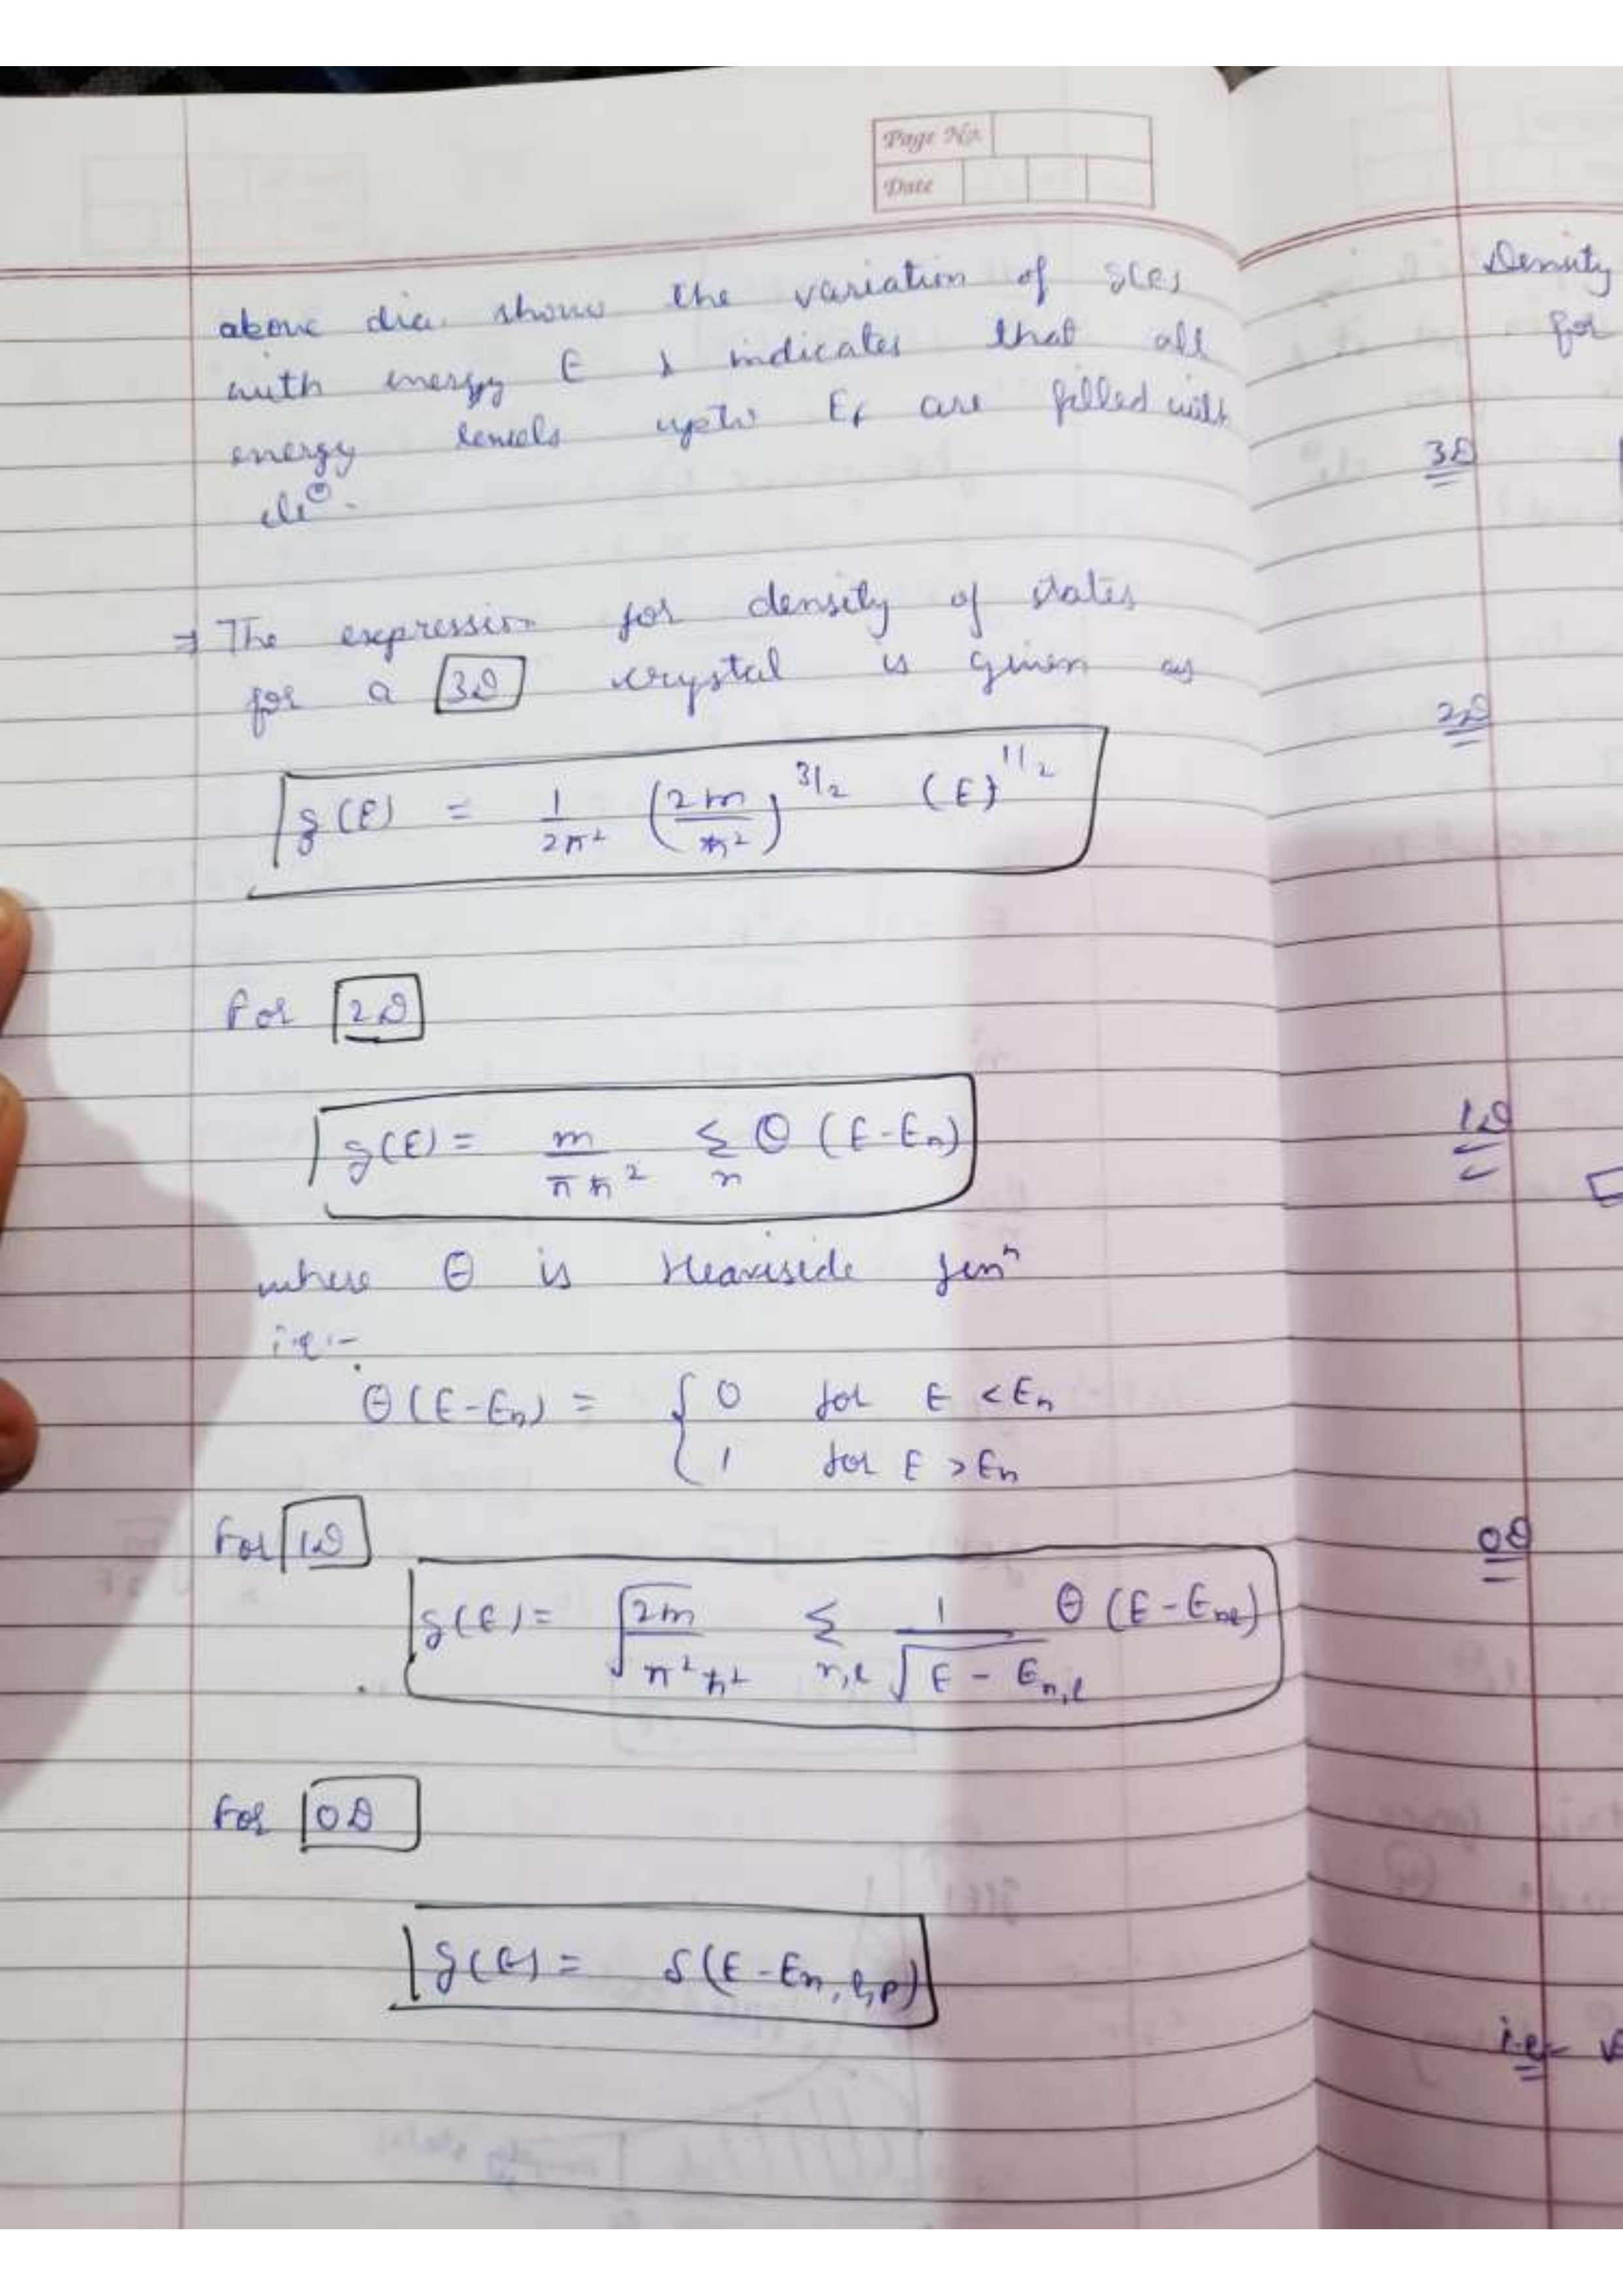 Page No.
Date
above dia. shows the variation of g(E)
with energy E & indicates that all
energy levels upto Ef are filled with
⇒ The expression for density of states
for a 3D crystal is given as
g(E) = 1/2π² (2m/ħ²)^3/2 (E)^1/2
For 2D
g(E) = m/πħ² Σn Θ (E-En)
where Θ is Heaviside funⁿ
i.e:-
Θ(E-En) = { 0 for E <En
1 for E >En
For 1D
g(E) = √2m/π²ħ² Σn,l 1/√E - En,l Θ (E - Enl)
For 0D
g(E) = δ(E-En,l,p)
Density
for
3D
2D
1D
0D
i.e=